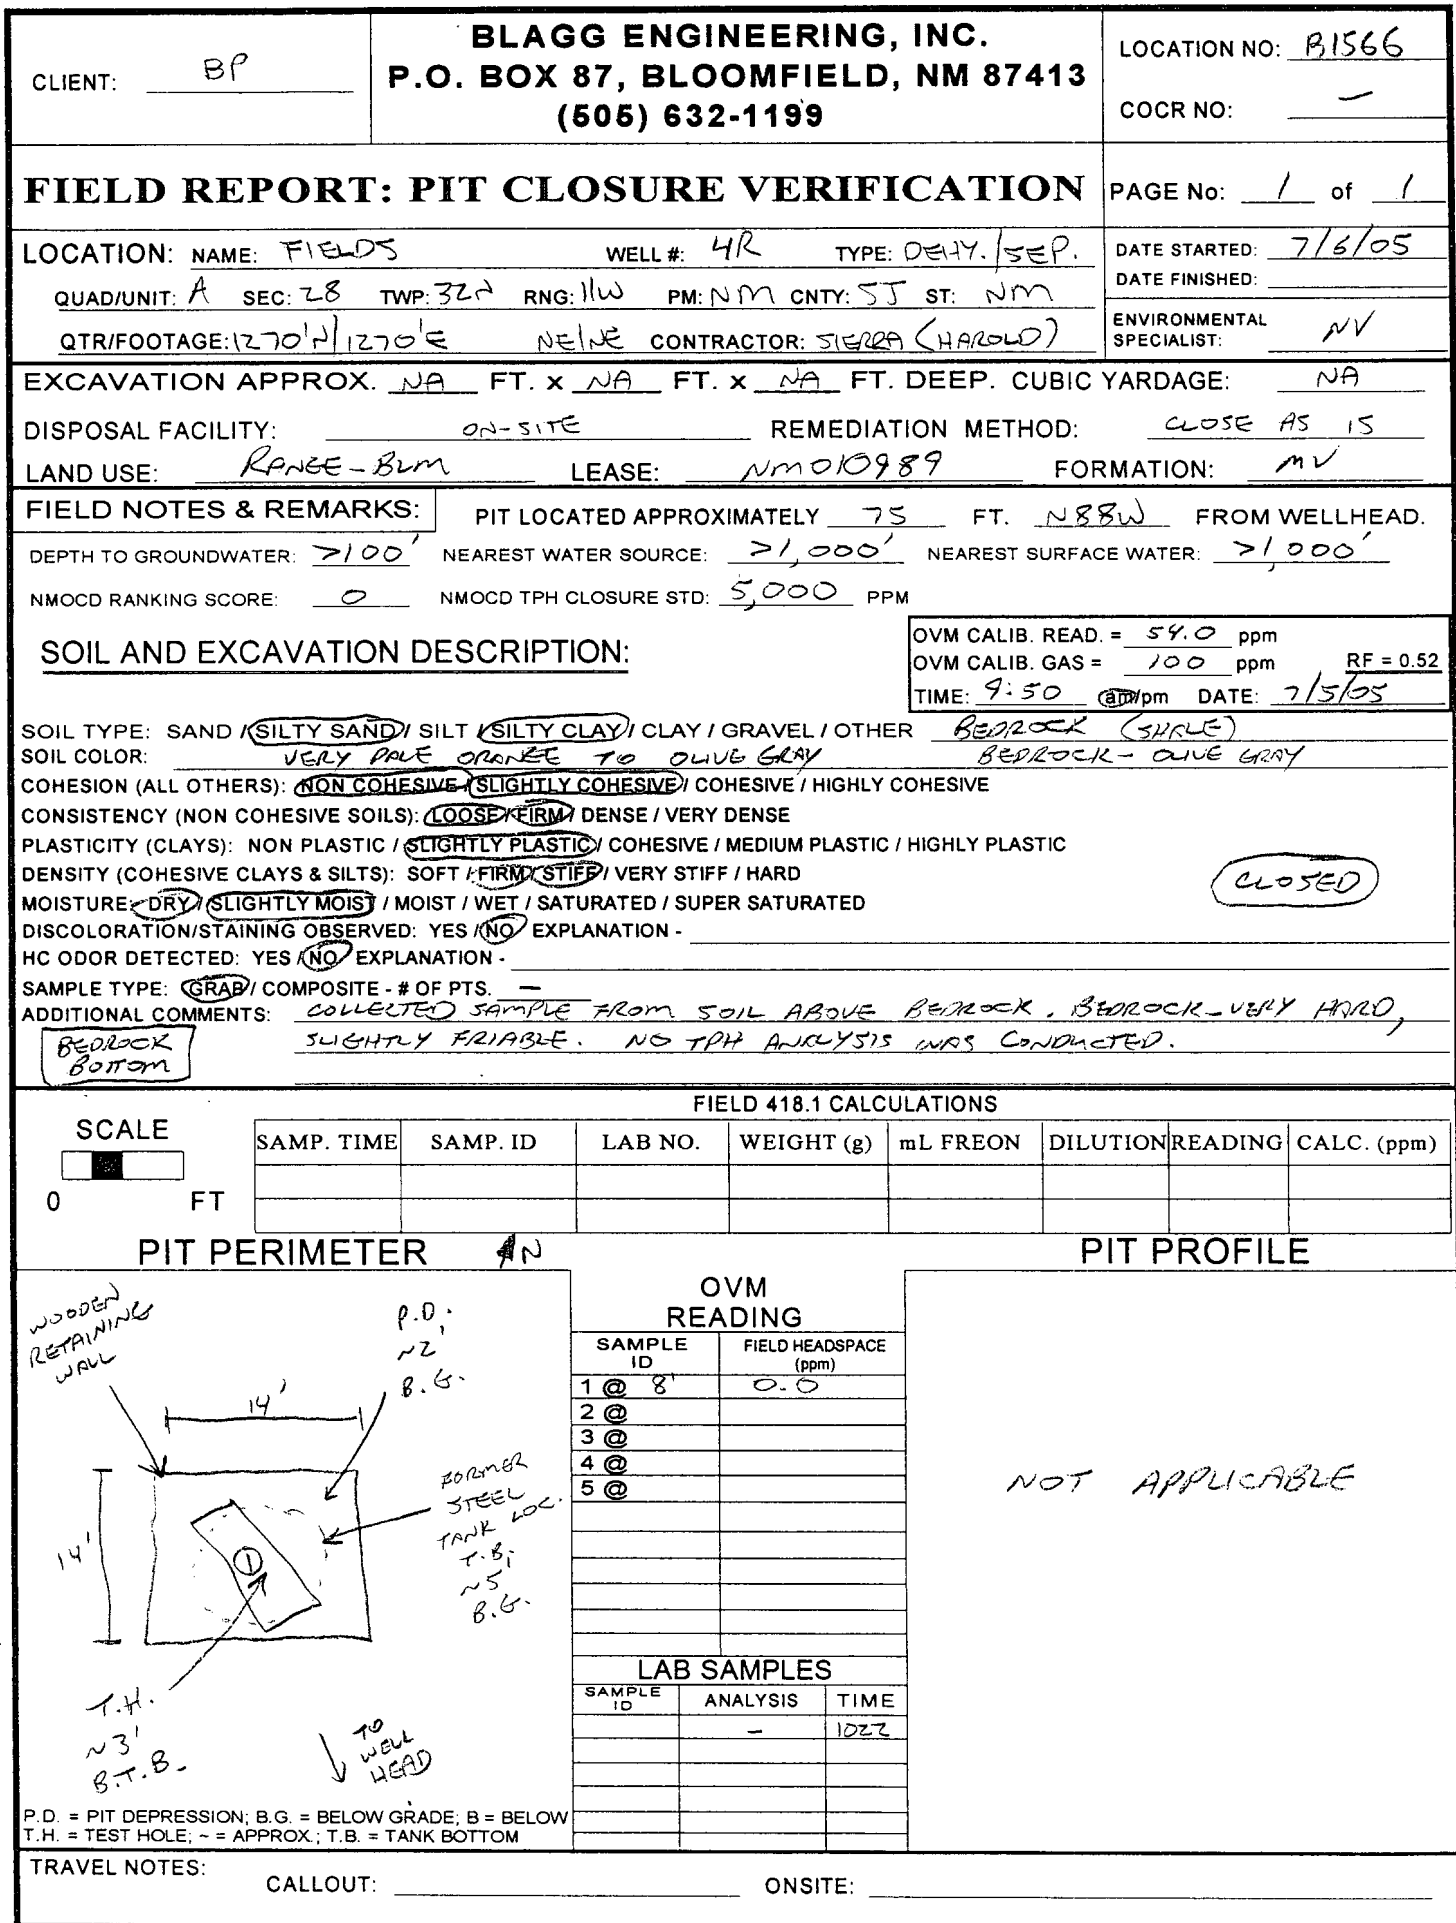 CLIENT: BP
BLAGG ENGINEERING, INC.
P.O. BOX 87, BLOOMFIELD, NM 87413
(505) 632-1199
LOCATION NO: B1566
COCR NO: —
FIELD REPORT: PIT CLOSURE VERIFICATION
PAGE No: 1 of 1
LOCATION: NAME: FIELDS WELL #: 4R TYPE: DEHY./SEP.
QUAD/UNIT: A SEC: 28 TWP: 32N RNG: 11W PM: NM CNTY: SJ ST: NM
QTR/FOOTAGE: 1270'N/1270'E NE/NE CONTRACTOR: SIERRA (HAROLD)
DATE STARTED: 7/6/05
DATE FINISHED:
ENVIRONMENTAL SPECIALIST: NV
EXCAVATION APPROX. NA FT. x NA FT. x NA FT. DEEP. CUBIC YARDAGE: NA
DISPOSAL FACILITY: ON-SITE REMEDIATION METHOD: CLOSE AS IS
LAND USE: RANGE-BLM LEASE: NM010989 FORMATION: MV
FIELD NOTES & REMARKS: PIT LOCATED APPROXIMATELY 75 FT. N88W FROM WELLHEAD.
DEPTH TO GROUNDWATER: >100' NEAREST WATER SOURCE: >1,000' NEAREST SURFACE WATER: >1,000'
NMOCD RANKING SCORE: 0 NMOCD TPH CLOSURE STD: 5,000 PPM
SOIL AND EXCAVATION DESCRIPTION:
OVM CALIB. READ. = 54.0 ppm
OVM CALIB. GAS = 100 ppm RF = 0.52
TIME: 9:50 am/pm DATE: 7/5/05
SOIL TYPE: SAND / SILTY SAND / SILT / SILTY CLAY / CLAY / GRAVEL / OTHER BEDROCK (SHALE)
SOIL COLOR: VERY PALE ORANGE TO OLIVE GRAY BEDROCK - OLIVE GRAY
COHESION (ALL OTHERS): NON COHESIVE / SLIGHTLY COHESIVE / COHESIVE / HIGHLY COHESIVE
CONSISTENCY (NON COHESIVE SOILS): LOOSE / FIRM / DENSE / VERY DENSE
PLASTICITY (CLAYS): NON PLASTIC / SLIGHTLY PLASTIC / COHESIVE / MEDIUM PLASTIC / HIGHLY PLASTIC
DENSITY (COHESIVE CLAYS & SILTS): SOFT / FIRM / STIFF / VERY STIFF / HARD
MOISTURE: DRY / SLIGHTLY MOIST / MOIST / WET / SATURATED / SUPER SATURATED
CLOSED
DISCOLORATION/STAINING OBSERVED: YES / NO EXPLANATION -
HC ODOR DETECTED: YES / NO EXPLANATION -
SAMPLE TYPE: GRAB / COMPOSITE - # OF PTS. —
ADDITIONAL COMMENTS: COLLECTED SAMPLE FROM SOIL ABOVE BEDROCK. BEDROCK - VERY HARD,
SLIGHTLY FRIABLE. NO TPH ANALYSIS WAS CONDUCTED.
BEDROCK
BOTTOM
FIELD 418.1 CALCULATIONS
SCALE
0 FT
SAMP. TIME SAMP. ID LAB NO. WEIGHT (g) mL FREON DILUTION READING CALC. (ppm)
PIT PERIMETER N
PIT PROFILE
WOODEN
RETAINING
WALL
P.D.
~2'
B.G.
14'
14'
FORMER
STEEL
TANK LOC.
T.B.
~5'
B.G.
1
T.H.
~3'
B.T.B.
TO
WELL
HEAD
P.D. = PIT DEPRESSION; B.G. = BELOW GRADE; B = BELOW
T.H. = TEST HOLE; ~ = APPROX.; T.B. = TANK BOTTOM
OVM
READING
SAMPLE ID FIELD HEADSPACE (ppm)
1 @ 8' 0.0
2 @
3 @
4 @
5 @
LAB SAMPLES
SAMPLE ID ANALYSIS TIME
— 1022
NOT APPLICABLE
TRAVEL NOTES:
CALLOUT: ONSITE: